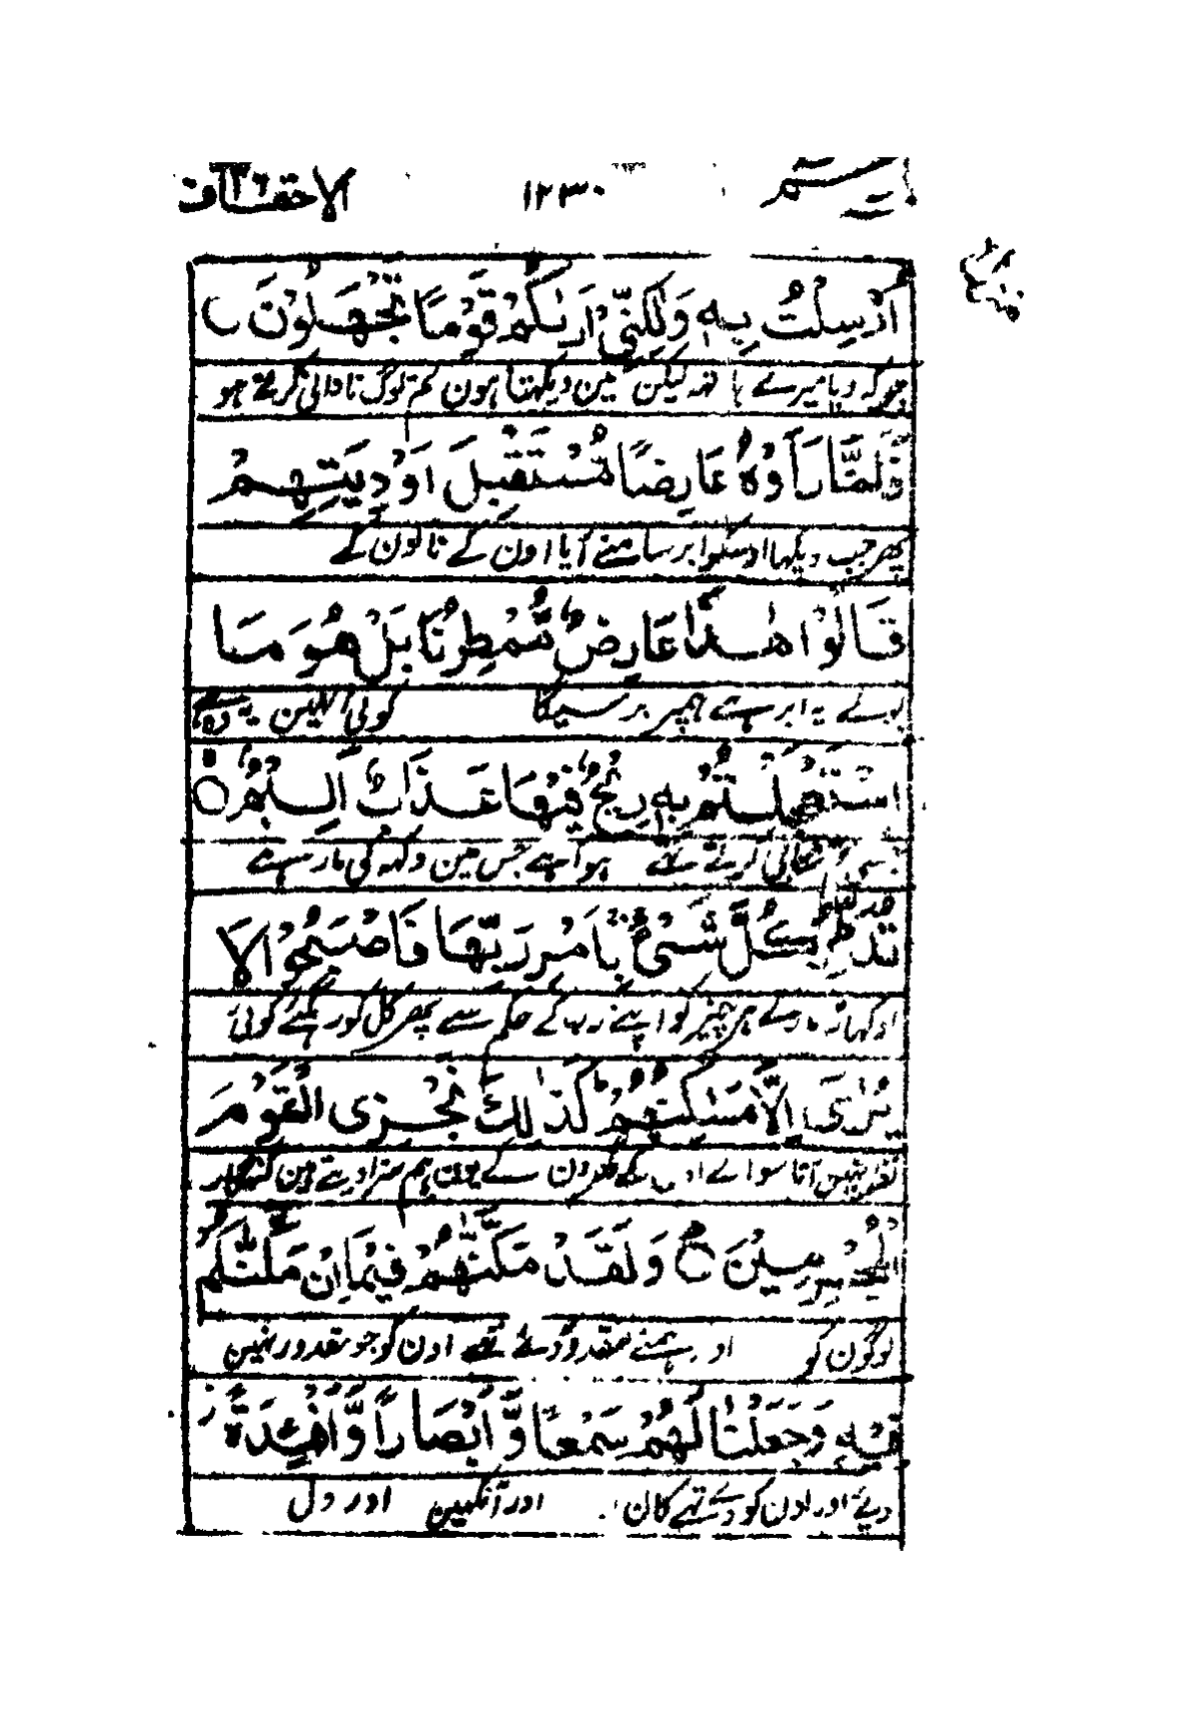 حٰمٓ ١٢٣٠ الاحقاف ٤٦
اُرْسِلْتُ بِهٖ وَلٰكِنِّیْۤ اَرٰىكُمْ قَوْمًا تَجْهَلُوْنَ
دیا میرے ہاتھ لیکن مین دیکھتا ہون کہ تم لوگ نادانی کرتے ہو
فَلَمَّا رَاَوْهُ عَارِضًا مُّسْتَقْبِلَ اَوْدِیَتِهِمْ
پھر جب دیکھا اوسکو ابر سامنے آیا اون کے نالون کے
قَالُوْا هٰذَا عَارِضٌ مُّمْطِرُنَا بَلْ هُوَ مَا
بولے یہ ابر ہے ہمپر برسیگا کوئی نہین یہ وہ ہے
اسْتَعْجَلْتُمْ بِهٖ رِیْحٌ فِیْهَا عَذَابٌ اَلِیْمٌ
شتابی کرتے تھے ہوا ہے جس مین دکھ کی مار ہے
تُدَمِّرُ كُلَّ شَیْءٍۭ بِاَمْرِ رَبِّهَا فَاَصْبَحُوْا لَا
اوکھاڑ مارے ہر چیز کو اپنے رب کے حکم سے پھر کل کو رہ گئے کوئی
یُرٰۤى اِلَّا مَسٰكِنُهُمْ كَذٰلِكَ نَجْزِی الْقَوْمَ
نظر نہین آتا سوائے اون کے گھرون کے یون ہم سزا دیتے ہین گنہگار
الْمُجْرِمِیْنَ وَلَقَدْ مَكَّنّٰهُمْ فِیْمَاۤ اِنْ مَّكَّنّٰكُمْ
لوگون کو اور ہمنے مقدور دئے تھے اون کو جو مقدور نہین
فِیْهِ وَجَعَلْنَا لَهُمْ سَمْعًا وَّاَبْصَارًا وَّاَفْـِٕدَةً
دیے اور اون کو دئے تھے کان اور آنکھین اور دل